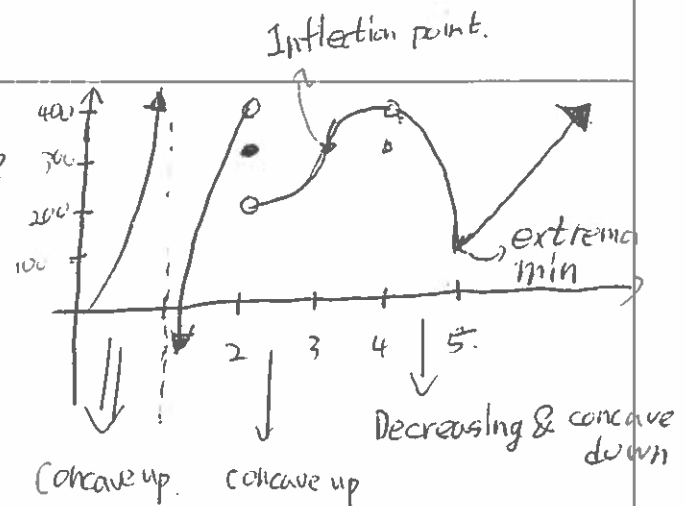 Inflection point.
400
300
200
100
extrema
min
2 3 4 5.
Decreasing & concave
down
Concave up. concave up